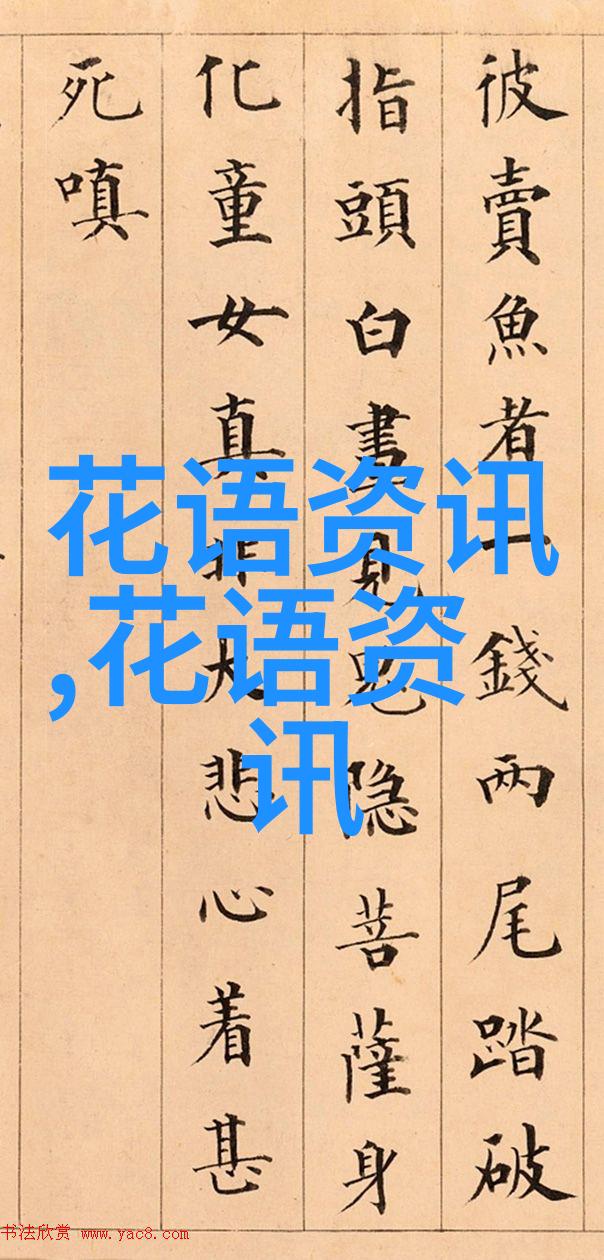 彼賣魚者一錢两尾踏破
指頭白晝見鬼隐菩薩身
化童女真非大悲心着甚
死嗔
花语资讯
,花语资
讯
书法欣赏 www.yac8.com